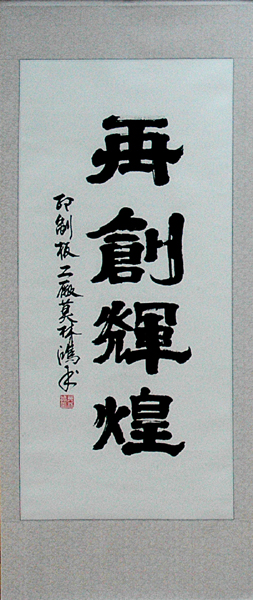 再創輝煌
印制板工廠莫林鴻书